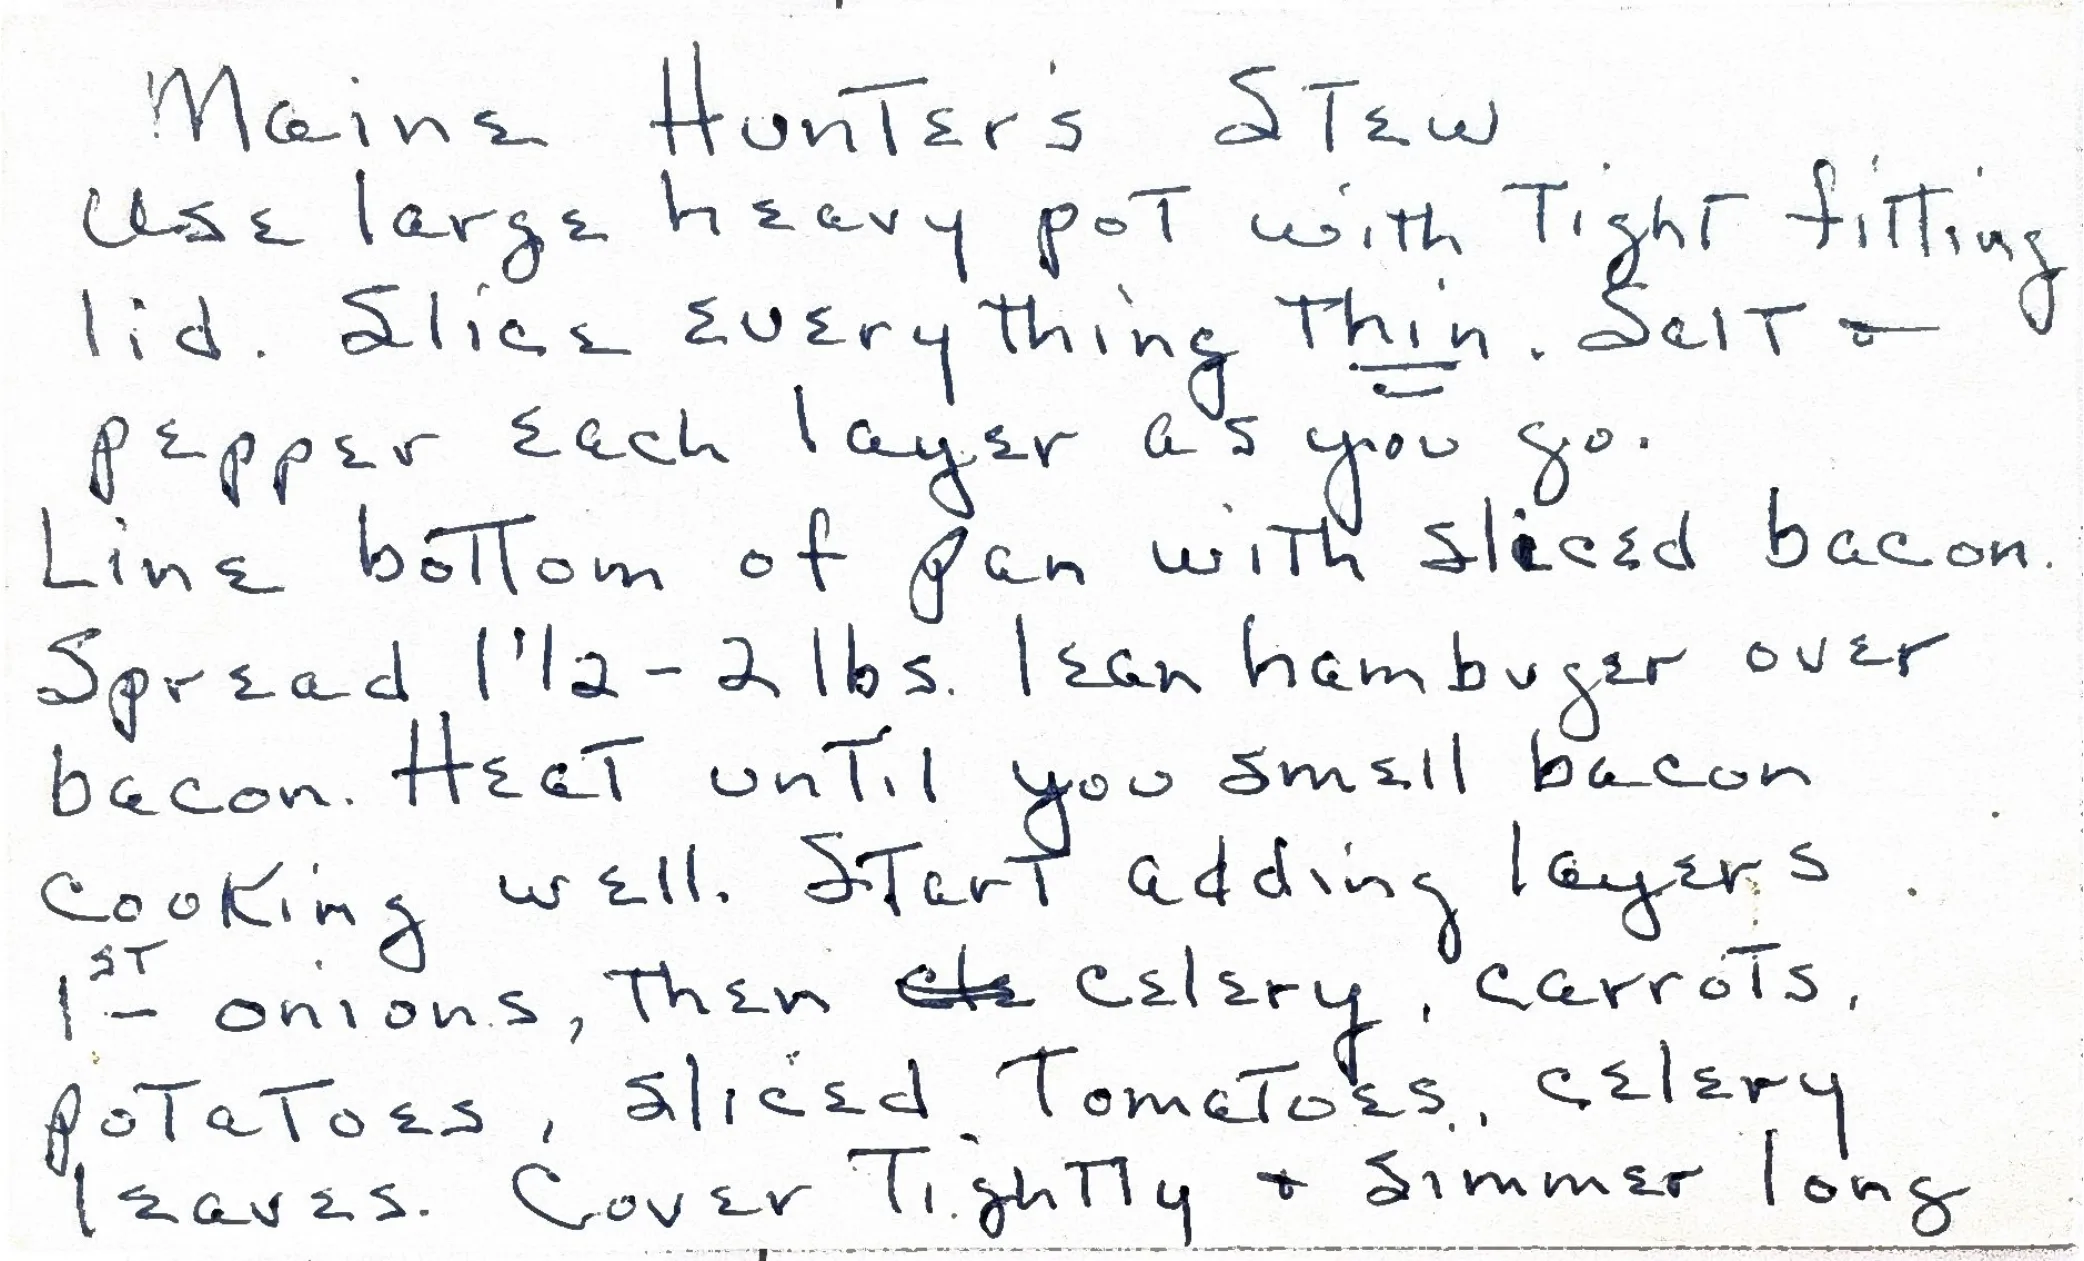 Maine Hunter's Stew
Use large heavy pot with tight fitting
lid. Slice everything thin. Salt &
pepper each layer as you go.
Line bottom of pan with sliced bacon.
Spread 1 1/2 - 2 lbs. lean hambuger over
bacon. Heat until you smell bacon
cooking well. Start adding layers.
1st - onions, then celery, carrots,
potatoes, sliced tomatoes, celery
leaves. Cover tightly & simmer long